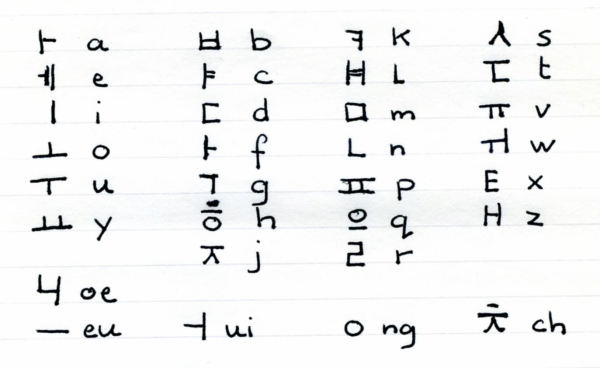 ㅏ a ㅂ b ㅋ k ㅅ s
ㅔ e ㅑ c ㅒ L ㄷ t
ㅣ i ㄷ d ㅁ m ㅠ v
ㅗ o ㅏ f ㄴ n ㅝ w
ㅜ u ㄱ g ㅍ p E x
ㅛ y ㅎ h 으 q H z
ㅈ j ㄹ r
oe
ㅡ eu ㅓ ui ㅇ ng ㅊ ch